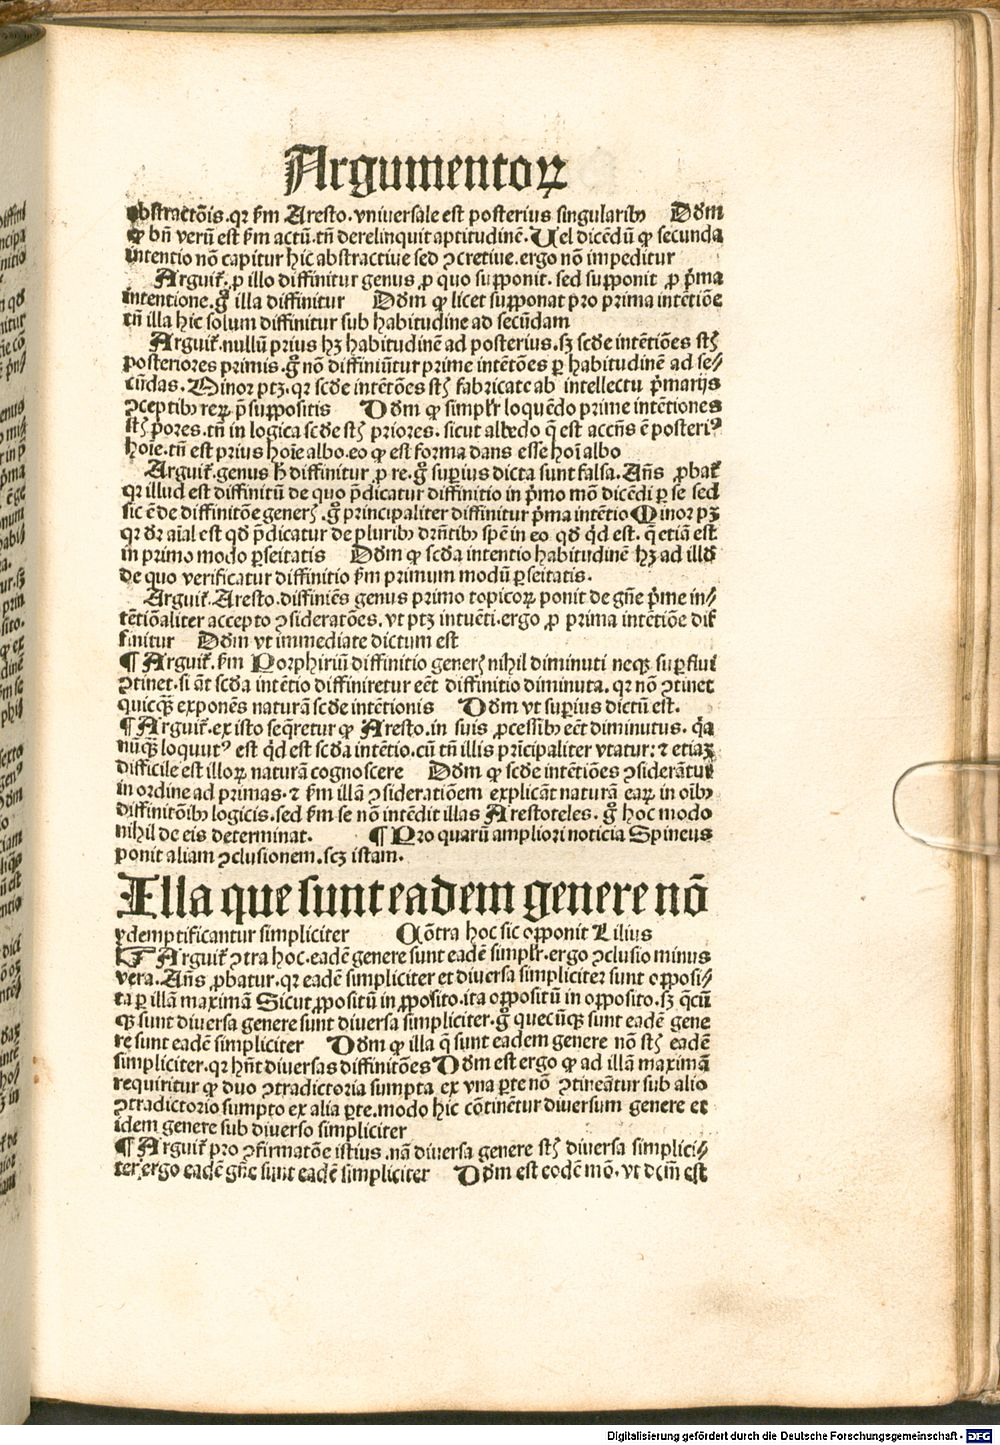 Argumentoꝝ
abstractõis. qꝛ ẜm Aresto. vniversale est posterius singularibꝰ Dðm
ꝙ bñ verũ est ẜm actũ. tñ derelinquit aptitudinẽ. Uel dicẽdũ ꝙ secunda
intentio nõ capitur hic abstractive sed ꝯcretive. ergo nõ impeditur
Arguit̃. ꝓ illo diffinitur genus ꝓ quo supponit. sed supponit ꝓ p̃ma
intentione. g̃ illa diffinitur Dðm ꝙ licet supponat pro prima intẽtiõe
tñ illa hic solum diffinitur sub habitudine ad secũdam
Arguit̃. nullũ prius hꝫ habitudinẽ ad posterius. sꝫ scðe intẽtiões st̃
posteriores primis. g̃ nõ diffiniũtur prime intẽtões ꝑ habitudinẽ ad se⸗
cũdas. Minor ptꝫ. qꝛ scðe intẽtões st̃ fabricate ab intellectu p̃marijs
ꝯceptibꝰ reꝝ p̃suppositis Dðm ꝙ simplr̃ loquẽdo prime intẽtiones
st̃ p̃ores. tñ in logica scðe st̃ priores. sicut albedo q̃ est accñs ẽ posteriꝰ
hoĩe. tñ est prius hoĩe albo. eo ꝙ est forma dans esse hoĩ albo
Arguit̃. genus h̃ diffinitur ꝓ re. g̃ superius dicta sunt falsa. Añs ꝓbat̃
qꝛ illud est diffinitũ de quo p̃dicatur diffinitio in p̃mo mõ dicẽdi ꝑ se sed
sic ẽ de diffinitõe gener̃. g̃ principaliter diffinitur p̃ma intẽtio Minor pꝫ
qꝛ ðr aĩal est qð p̃dicatur de pluribꝰ drñtibꝰ spẽ in eo qð qd̃ est. q̃ etiã est
in primo modo ꝑseitatis Dðm ꝙ scða intentio habitudinẽ hꝫ ad illð
de quo verificatur diffinitio ẜm primum modũ ꝑseitatis.
Arguit̃. Aresto. diffiniẽs genus primo topicoꝝ ponit de gñe p̃me in⸗
tẽtiõaliter accepto ꝯsideratões. vt ptꝫ intuẽti. ergo ꝓ prima intẽtiõe dif
finitur Dðm vt immediate dictum est
¶ Arguit̃. ẜm Porphiriũ diffinitio gener̃ nihil diminuti neqꝫ suꝑflui
ꝯtinet. si aũt scða intẽtio diffiniretur eẽt diffinitio diminuta. qꝛ nõ ꝯtinet
quicqꝫ exponẽs naturã scðe intẽtionis Dðm vt superius dictũ est.
¶ Arguit̃. ex isto seq̃retur ꝙ Aresto. in suis ꝓcessibꝰ eẽt diminutus. q̃a
nũqꝫ loquutꝰ est qd̃ est scða intẽtio. cũ tñ illis pr̃ncipaliter vtatur: ⁊ etiaꝫ
difficile est illoꝝ naturã cognoscere Dðm ꝙ scðe intẽtiões ꝯsiderãtur
in ordine ad primas. ⁊ ẜm illã ꝯsideratiõem explicãt naturã eaꝝ in oĩbꝰ
diffinitõibꝰ logicis. sed ẜm se nõ intẽdit illas Arestoteles. g̃ hoc modo
nihil de eis determinat. ¶ Pro quarũ ampliori noticia Spineus
ponit aliam ꝯclusionem. scꝫ istam.
Illa que sunt eadem genere nõ
ydemptificantur simpliciter Cõtra hoc sic opponit Lilius
Arguit̃ ꝯtra hoc. eadẽ genere sunt eadẽ simplr̃. ergo ꝯclusio minus
vera. Añs ꝓbatur. qꝛ eadẽ simpliciter et diversa simpliciter sunt opposi⸗
ta ꝑ illã maximã Sicut ꝓpositũ in ꝓposito. ita oppositũ in opposito. sꝫ q̃cũ
qꝫ sunt diversa genere sunt diversa simpliciter. g̃ quecũqꝫ sunt eadẽ gene
re sunt eadẽ simpliciter Dðm ꝙ illa q̃ sunt eadem genere nõ st̃ eadẽ
simpliciter. qꝛ hñt diversas diffinitões Dðm est ergo ꝙ ad illã maximã
requiritur ꝙ duo ꝯtradictoria sumpta ex vna ꝑte nõ ꝯtineãtur sub alio
ꝯtradictorio sumpto ex alia ꝑte. modo hic cõtinẽtur diversum genere et
idem genere sub diverso simpliciter
¶ Arguit̃ pro ꝯfirmatõe istius. nã diversa genere st̃ diversa simplici⸗
ter. ergo eadẽ gñe sunt eadẽ simpliciter Dðm est eodẽ mõ. vt dcm̃ est
Digitalisierung gefördert durch die Deutsche Forschungsgemeinschaft - DFG